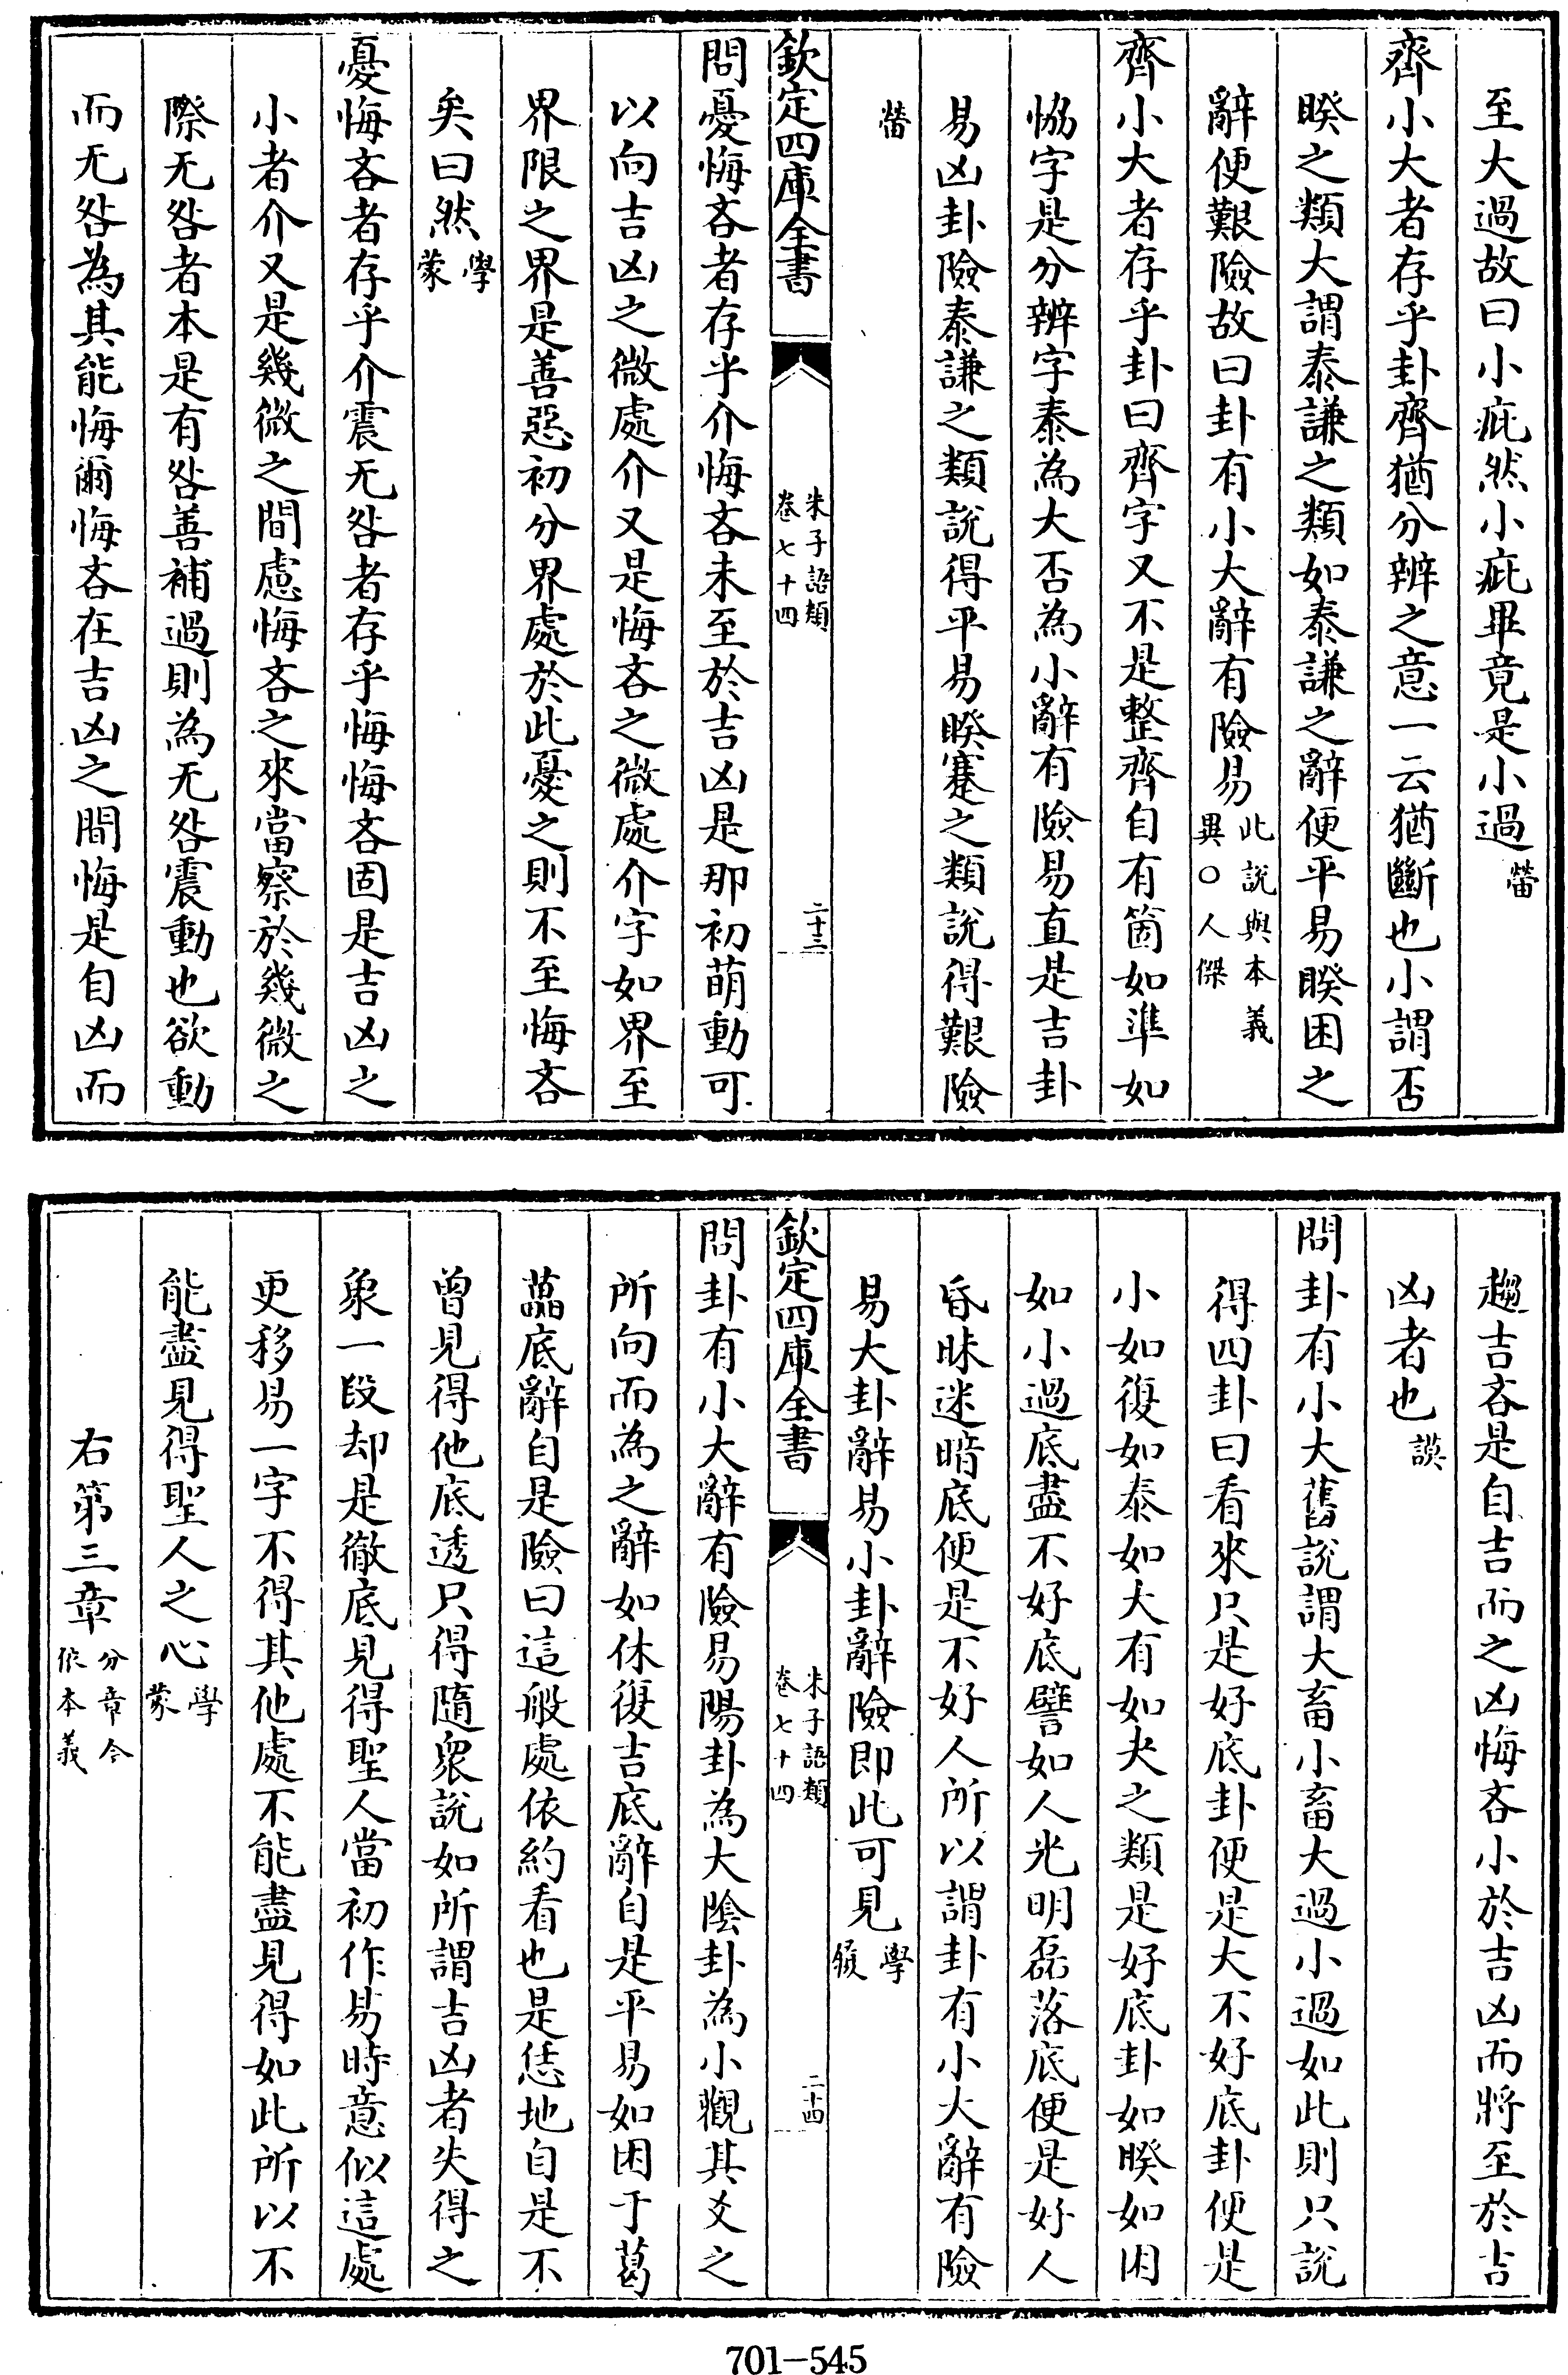 至大過故曰小疵然小疵畢竟是小過㽦
齊小大者存乎卦齊猶分辨之意一云猶斷也小謂否
睽之類大謂泰謙之類如泰謙之辭便平易睽困之
辭便艱險故曰卦有小大辭有險易此說與本義
異○人傑
齊小大者存乎卦曰齊字又不是整齊自有箇如準如
恊字是分辨字泰為大否為小辭有險易直是吉卦
易凶卦險泰謙之類說得平易睽蹇之類說得艱險
㽦
欽定四庫全書
朱子語類
卷七十四
二十三
問憂悔吝者存乎介悔吝未至於吉凶是那初萌動可
以向吉凶之微處介又是悔吝之微處介字如界至
界限之界是善惡初分界處於此憂之則不至悔吝
矣曰然學
蒙
憂悔吝者存乎介震无咎者存乎悔悔吝固是吉凶之
小者介又是幾微之間慮悔吝之來當察於幾微之
際无咎者本是有咎善補過則為无咎震動也欲動
而无咎為其能悔爾悔吝在吉凶之間悔是自凶而
趨吉吝是自吉而之凶悔吝小於吉凶而將至於吉
凶者也謨
問卦有小大舊說謂大畜小畜大過小過如此則只說
得四卦曰看來只是好底卦便是大不好底卦便是
小如復如泰如大有如夬之類是好底卦如睽如困
如小過底盡不好底譬如人光明磊落底便是好人
昏昧迷暗底便是不好人所以謂卦有小大辭有險
易大卦辭易小卦辭險即此可見學
履
欽定四庫全書
朱子語類
卷七十四
二十四
問卦有小大辭有險易陽卦為大陰卦為小觀其爻之
所向而為之辭如休復吉底辭自是平易如困于葛
藟底辭自是險曰這般處依約看也是恁地自是不
曾見得他底透只得隨衆說如所謂吉凶者失得之
象一段却是徹底見得聖人當初作易時意似這處
更移易一字不得其他處不能盡見得如此所以不
能盡見得聖人之心學
蒙
右第三章分章今
依本義
701-545